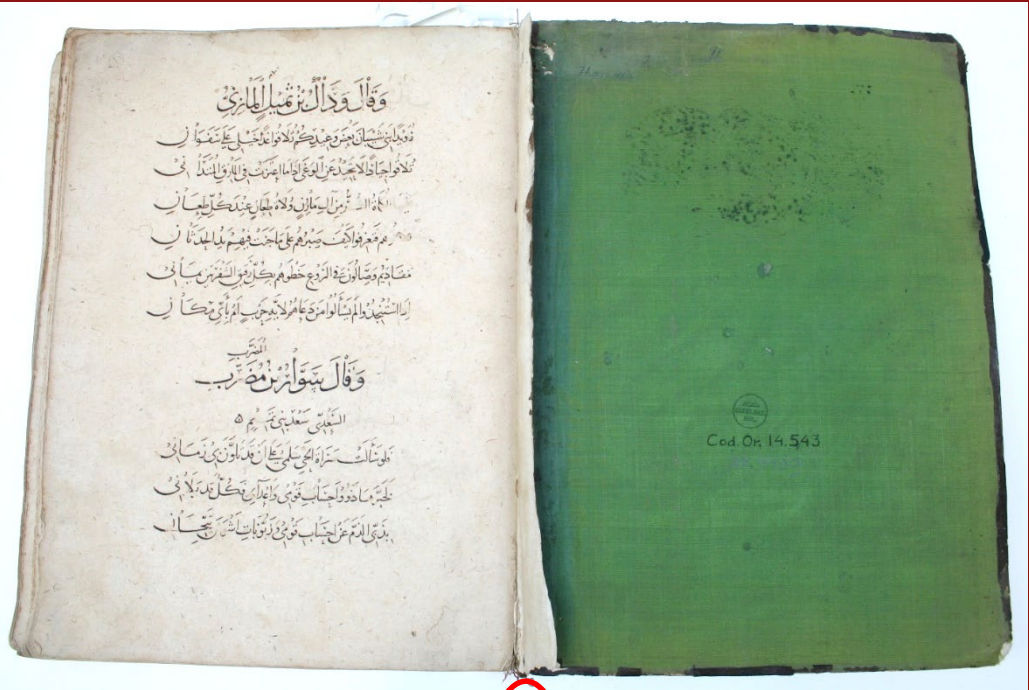 وَقَالَ وَدَّاكُ بْنُ ثُمَيْلٍ الْمَازِنِيُّ
رُوَيْدًا بَنِي شَيْبَانَ بَعْضَ وَعِيدِكُمْ تُلَاقُوا غَدًا خَيْلِي عَلَى سَفَوَانِ
تُلَاقُوا جِيَادًا لَا تَحِيدُ عَنِ الْوَغَى إِذَا مَا غَدَتْ فِي الْمَأْزِقِ الْمُتَدَانِي
الْكُمَاةُ الْغُرُّ مِنْ آلِ مَازِنٍ وُلَاةُ طِعَانٍ عِنْدَ كُلِّ طِعَانِ
فَتَعْرِفُوا كَيْفَ صَبْرُهُمْ عَلَى مَا جَنَتْ فِيهِمْ يَدُ الْحَدَثَانِ
مَقَادِيمُ وَصَّالُونَ فِي الرَّوْعِ خَطْوَهُمْ بِكُلِّ رَقِيقِ الشَّفْرَتَيْنِ يَمَانِي
إِذَا اسْتُنْجِدُوا لَمْ يَسْأَلُوا مَنْ دَعَاهُمُ لِأَيَّةِ حَرْبٍ أَمْ بِأَيِّ مَكَانِ
المُضَرِّبِ
وَقَالَ سَوَّارُ بْنُ مُضَرِّبٍ
السَّعْدِيُّ سَعْدُ بَنِي تَمِيمٍ
فَلَوْ سَأَلَتْ سَرَاةَ الْحَيِّ سَلْمَى عَلَى أَنْ قَدْ تَلَوَّنَ بِي زَمَانِي
لَخَبَّرَهَا ذَوُو أَحْسَابِ قَوْمِي وَأَعْدَائِي فَكُلٌّ قَدْ بَلَانِي
بِذَبِّي الذَّمَّ عَنْ أَحْسَابِ قَوْمِي وَزَبُّونَاتِ أَشْوَسَ تَيَّحَانِ
Cod. Or. 14.543